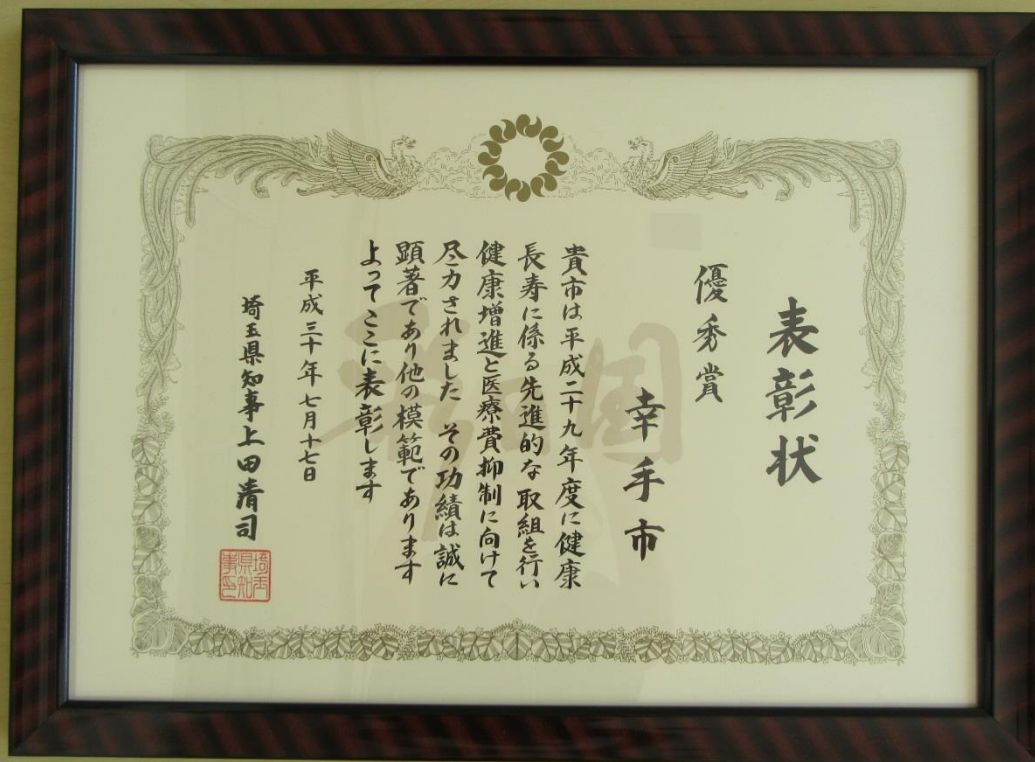 表彰状
優秀賞
幸手市
貴市は平成二十九年度に健康
長寿に係る先進的な取組を行い
健康増進と医療費抑制に向けて
尽力されました その功績は誠に
顕著であり他の模範であります
よってここに表彰します
平成三十年七月十七日
埼玉県知事上田清司
埼玉
県知
事印
彩の国